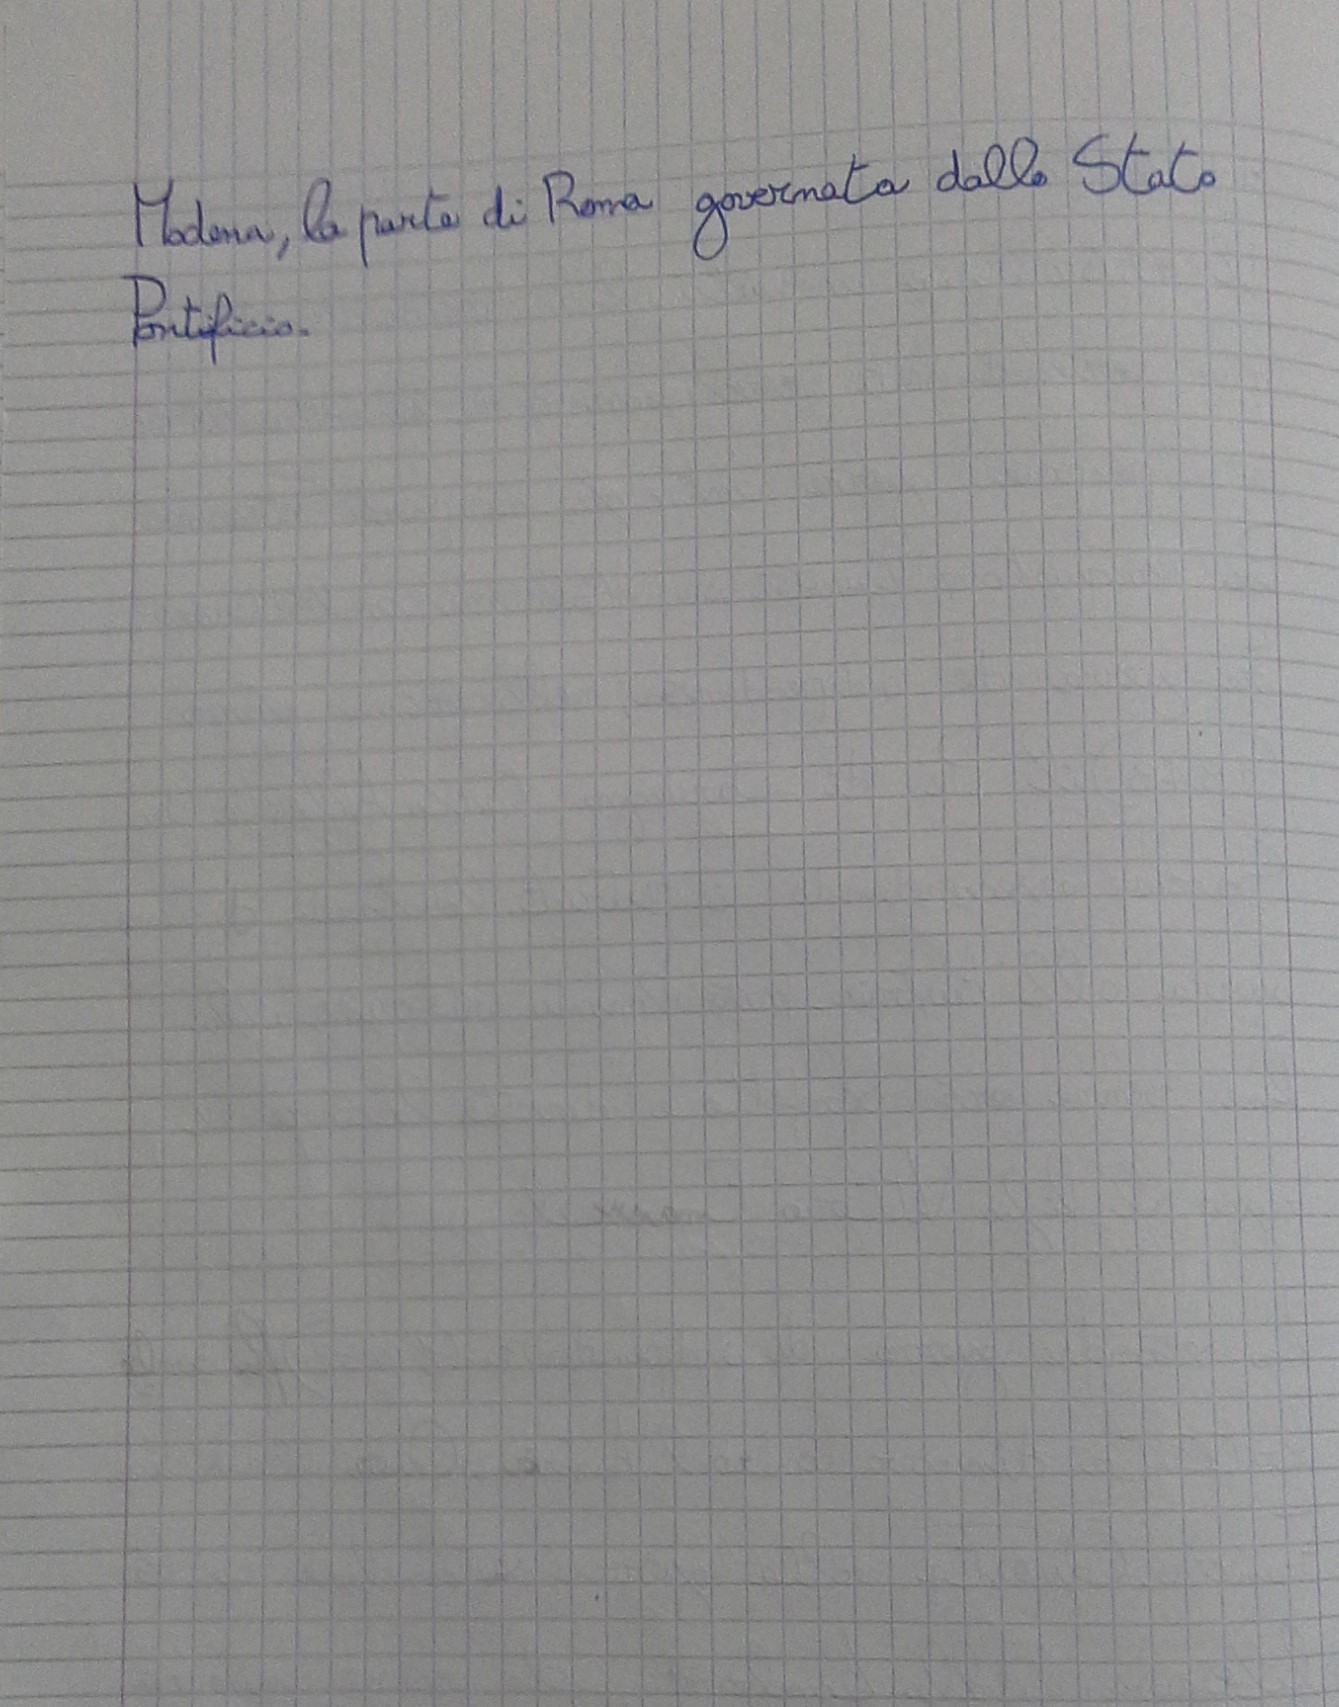 Modena, la parte di Roma governata dallo Stato
Pontificio.